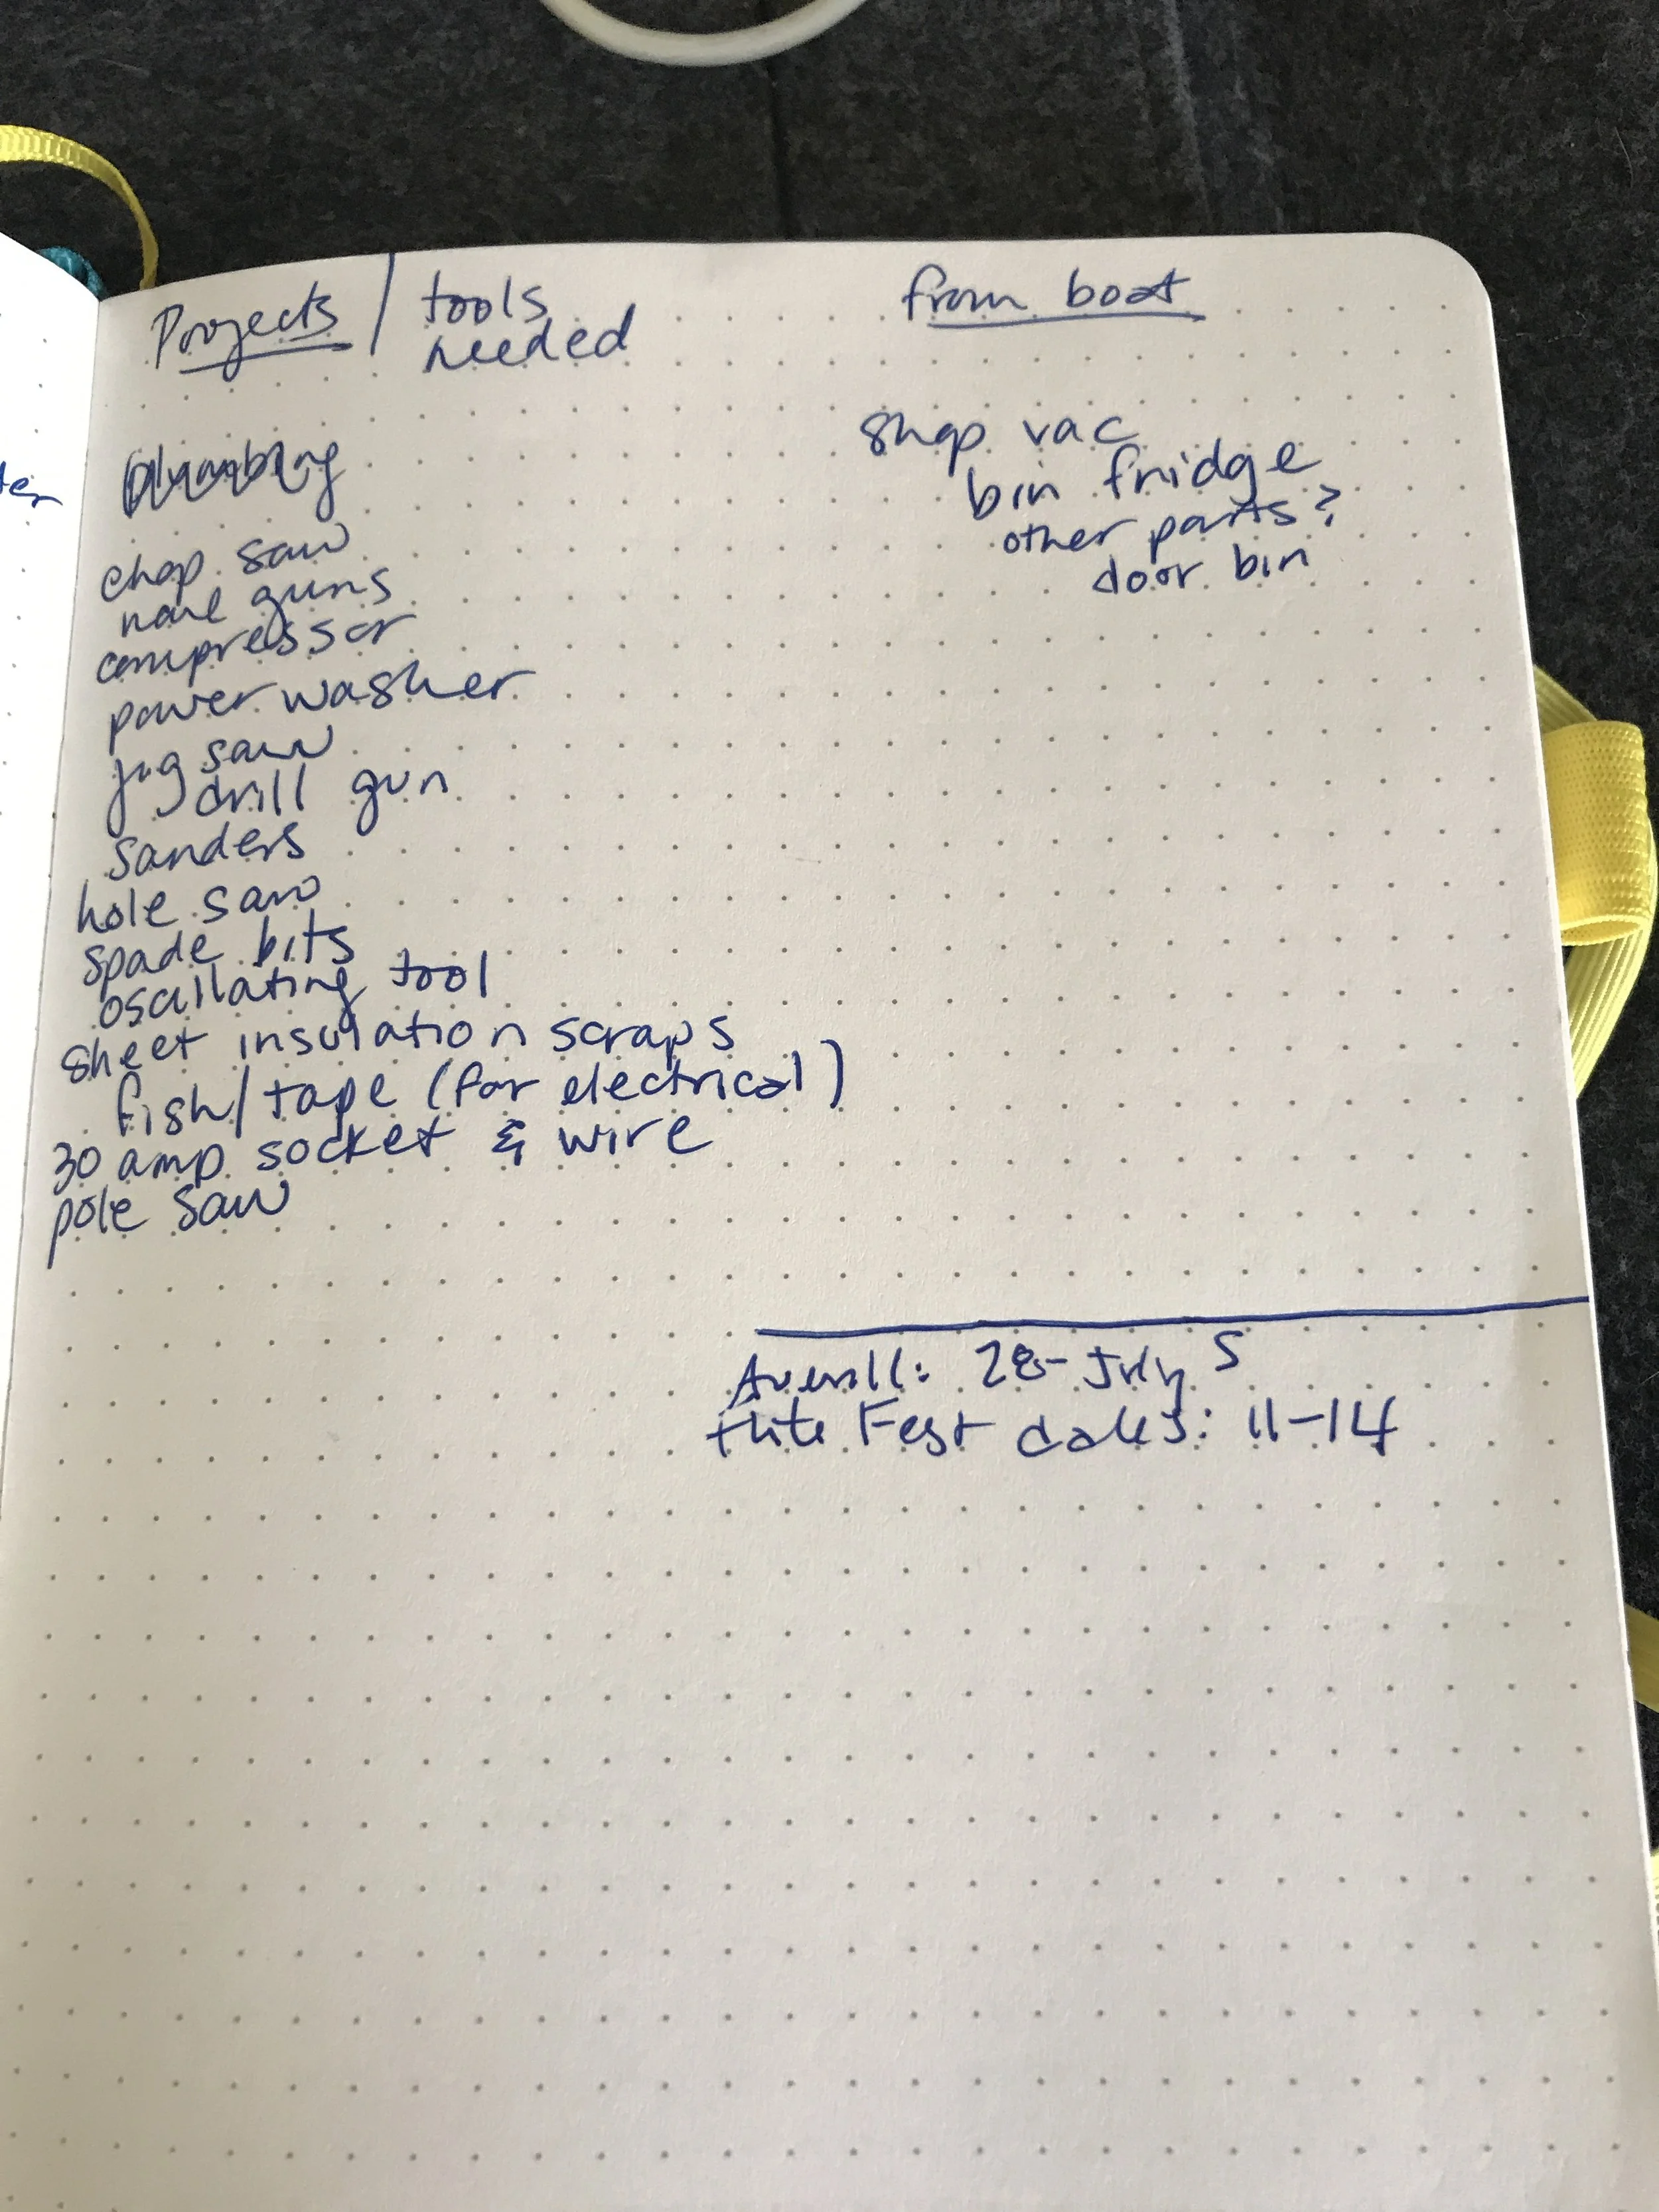 Projects / tools needed
from boat
plumbing
chop saw
nail guns
compressor
power washer
jig saw
drill gun
sanders
hole saw
spade bits
oscillating tool
sheet insulation scraps
fish/tape (for electrical)
30 amp socket & wire
pole saw
shop vac
bin fridge
other parts?
door bin
Averill: 28-July 5
Flite Fest dates: 11-14